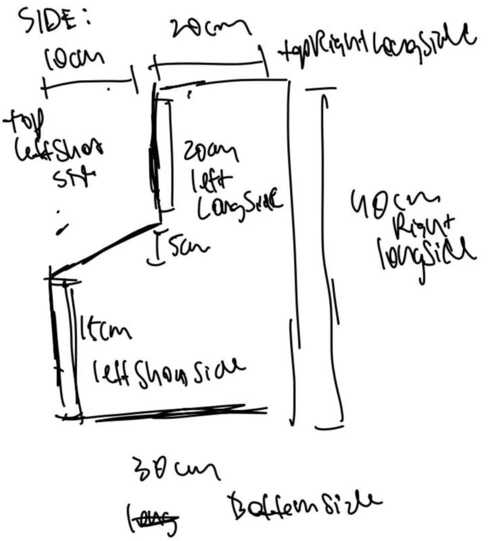 SIDE:
20cm
topRightLongSide
10cm
top
leftShort
20cm
left
LongSide
40cm
Right
longside
5cm
15cm
leftShortSide
30cm
long
BottemSide